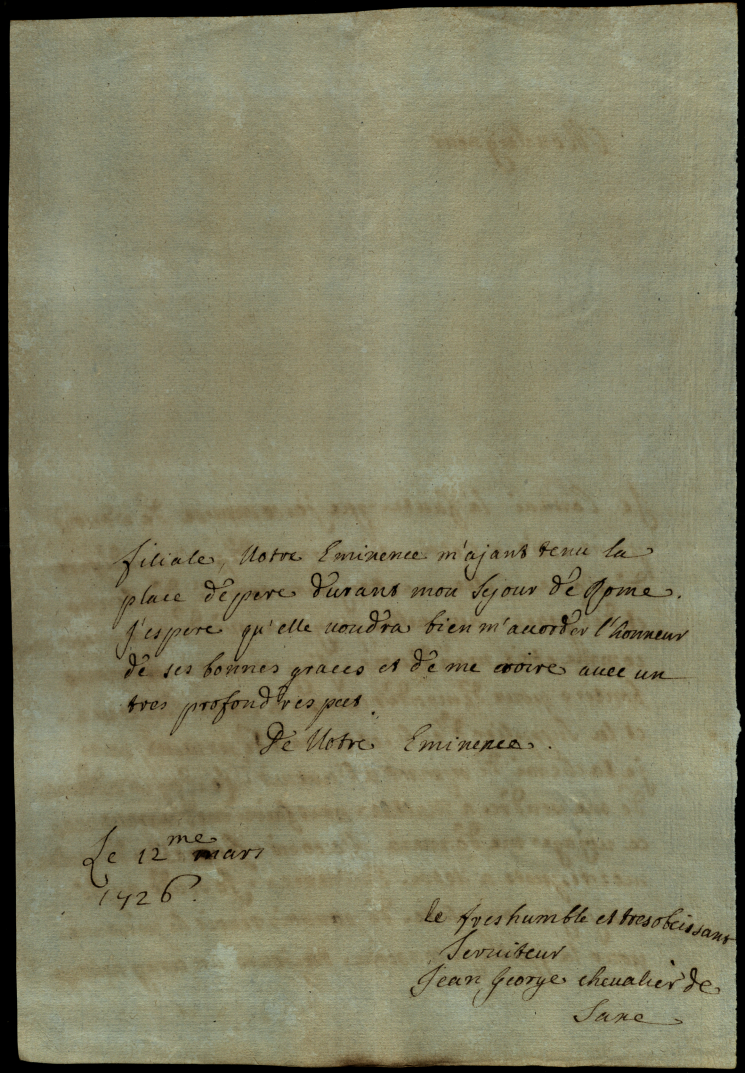 filiale, Votre Eminence m'ajant tenu la
place de pere durant mon sejour de Rome.
j'espere qu'elle voudra bien m'accorder l'honneur
de ses bonnes graces et de me croire avec un
tres profond respect.
De Votre Eminence.
Le 12me mars
1726.
le tres humble et tres obeissant
Serviteur
Jean George chevalier de
Saxe